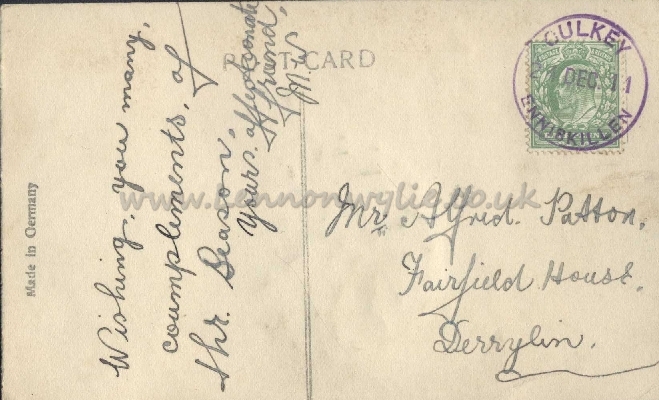 POST CARD
Wishing, you many,
coumplements, of
thr. Season,
yours. affectionate
friend,
M. W
Made in Germany
GULKEY
27 DEC. 11
ENNISKILLEN
Mr Alfred. Patton.
Fairfield House.
Derrylin.
www.lennonwylie.co.uk